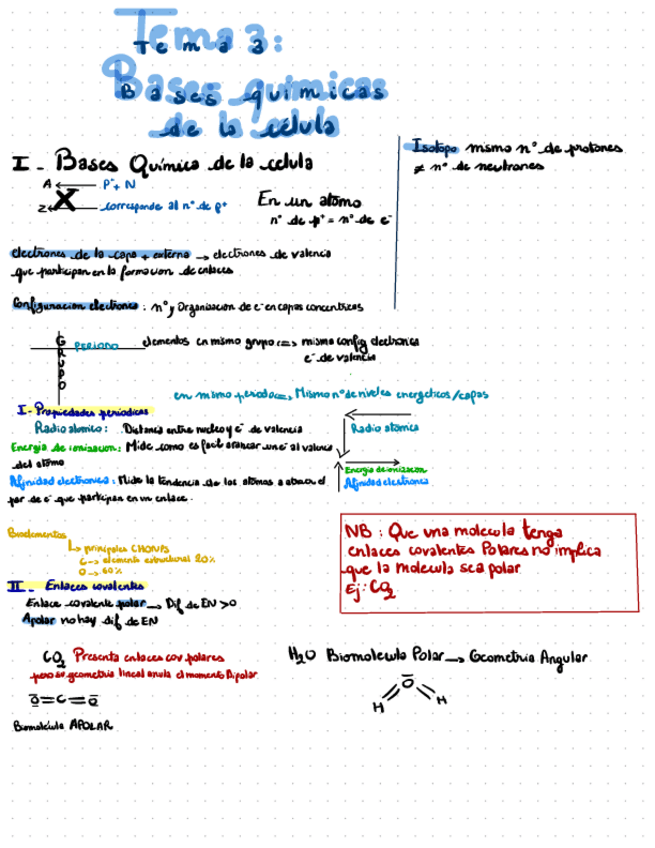 Tema 3:
Bases químicas
de la célula
I - Bases Química de la celula
A ← P⁺ + N
X
Z ← corresponde al nº de p⁺
En un atomo
nº de p⁺ = nº de e⁻
Isotopo mismo nº de protones
≠ nº de neutrones
electrones de la capa + externa → electrones de valencia
que participan en la formacion de enlaces
Configuracion electronica : nº y Organización de e⁻ en capas concentricas
GRUPO
PERIODO
elementos en mismo grupo => misma config electronica
e⁻ de valencia
en mismo periodo => Mismo nº de niveles energeticos / capas
I - Propiedades periodicas
Radio atomico : Distancia entre nucleo y e⁻ de valencia
Energia de ionizacion : Mide como es facil arancar un e⁻ al valencia
del atomo
Afinidad electronica : Mide la tendencia de los atomos a atraer el
par de e⁻ que participan en un enlace.
Radio atomica
Energia de ionizacion
Afinidad electronica
Bioelementos
↳ principales CHONPS
C → elemento estructural 20%
O → 60%
NB : Que una molecula tenga
enlaces covalentes Polares no implica
que la molecula sea polar
Ej : CO₂
II - Enlaces covalentes
Enlace covalente polar → Dif de EN > 0
Apolar no hay dif de EN
CO₂ Presenta enlaces cov polares
pero su geometria lineal anula el momento Dipolar
O=C=O
Biomolécula APOLAR
H₂O Biomolecula Polar → Geometria Angular
O
H H